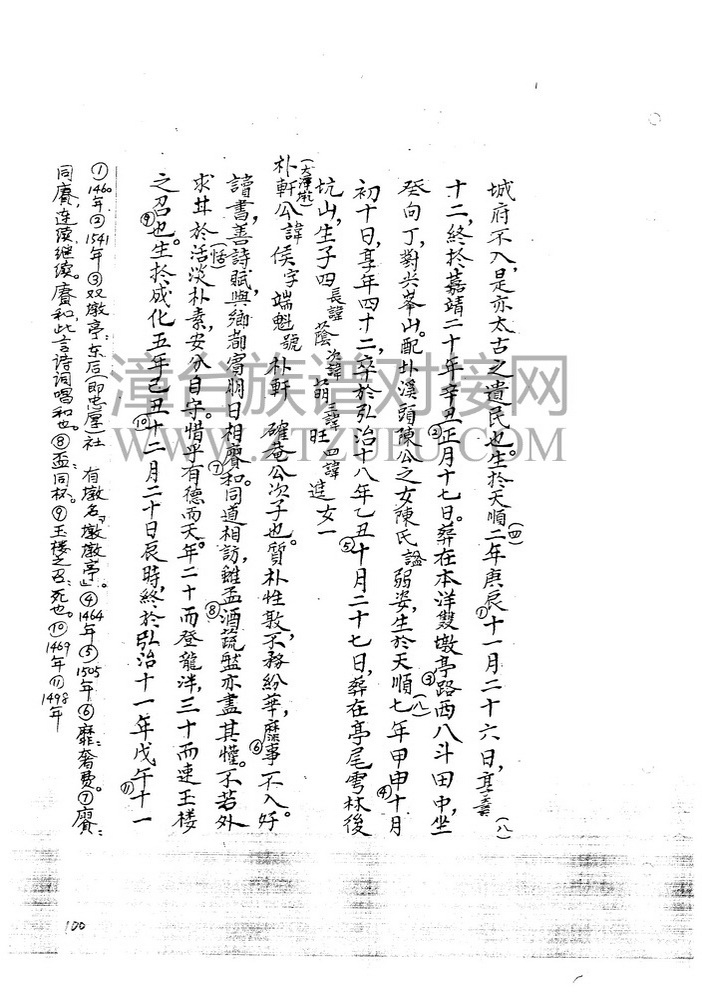 城府不入,是亦太古之遺民也。生於天順二(四)年庚辰①十一月二十六日,享壽(八)
十二,終於嘉靖二十年辛丑②正月十七日。葬在本洋雙墩亭③路西八斗田中,坐
癸向丁,對尖峯山。配圤溪頭陳公之女陳氏謚弱姿,生於天順七(八)年甲申④十月
初十日,享年四十二,卒於弘治十八年乙丑⑤十月二十七日,葬在亭尾雲林後
坑山,生子四長諱蔭次諱萌三諱旺四諱進女一
朴軒公諱侯字端魁號朴軒確菴公次子也。質朴性敦,不務紛華,靡⑥事不入好。
讀書,善詩賦,與鄉都賓朋日相賡⑦和。同道相訪,雖盃⑧酒蔬盤亦盡其懽。不若外
求甘於活(恬)淡朴素,安分自守。惜乎有德而夭。年二十而登龍泮,三十而速玉樓
之召⑨也。生於成化五年己丑⑩十二月二十日辰時,終於弘治十一年戊午⑪十一
①1460年②1541年③双墩亭:东后(即忠厚)社有墩名「墩墩亭」。④1464年⑤1505年⑥靡:奢费。⑦賡:
同赓,连续,继续。赓和,此言诗词唱和也。⑧盃:同杯。⑨玉楼之召:死也。⑩1469年⑪1498年
100
漳台族谱对接网
WWW.ZTZUPU.COM